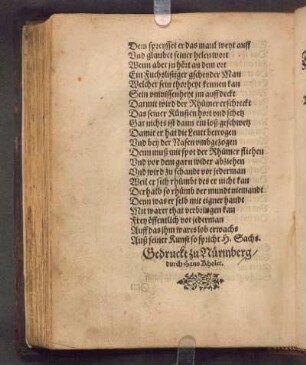 Dem spreysset er das maul weyt auff
Vnd glaubet seiner helen wort
Wenn aber zu hört an dem ort
Ein Fuchslistiger gschender Man
Welcher sein thorheyt kennen kan
Sein vnwissenheyt jm auffdeckt
Darmit wird der Rhümer erschreckt
Das seiner Künsten hort vnd schetz
Gar nichts ist dann ein loß geschwetz
Damit er hat die Leut betrogen
Vnd bey der Nasen vmbgezogen
Denn muß mit spot der Rhümer fliehen
Vnd vor dem garn wider abziehen
Vnd wird zu schandt vor jederman
Weil er sich rhümbt des er nicht kan
Derhalb so rhümb der mundt niemandt
Denn was er selb mit eigner handt
Mit warer that verbringen kan
Frey öffentlich vor jederman
Auff das jhm wares lob erwachs
Auß seiner Kunst so spricht H. Sachs.
Gedruckt zu Nürmberg/
durch Hans